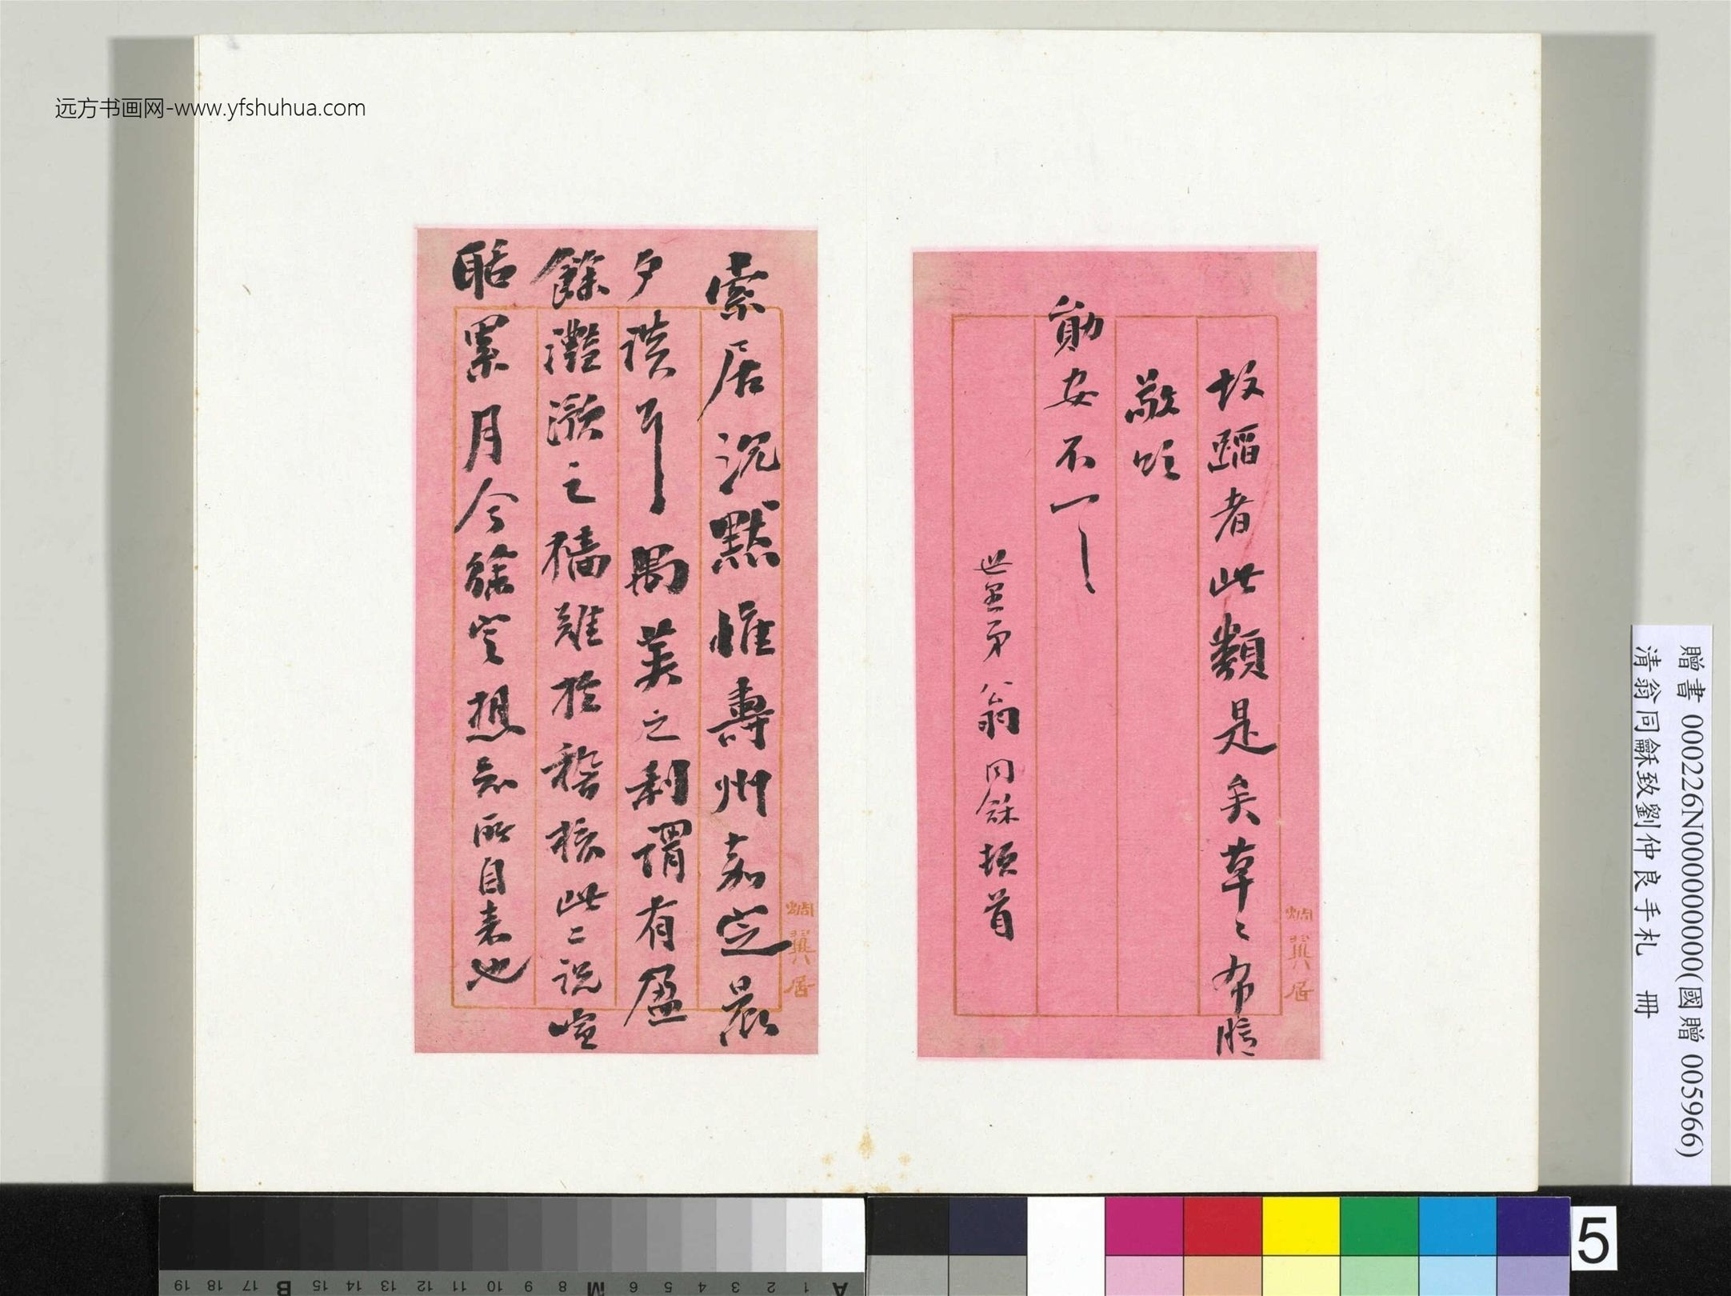 远方书画网-www.yfshuhua.com
故蹈者此類是矣草〻布臆
敬頌
勛安不一〻
世愚弟公翁同龢頓首
烱䕫居
索居沉默惟壽州嘉定晨
夕談
禺美之利謂有盈
餘灩澦之
難於稽核此二說喧
聒累月今餘定想知所自來也
居
贈書 000226N000000000(國贈 005966)
清翁同龢致劉仲良手札 冊
5
19 18 17 B 16 15 14 13 12 11 10 9 8 M 7 6 5 4 3 2 1 A